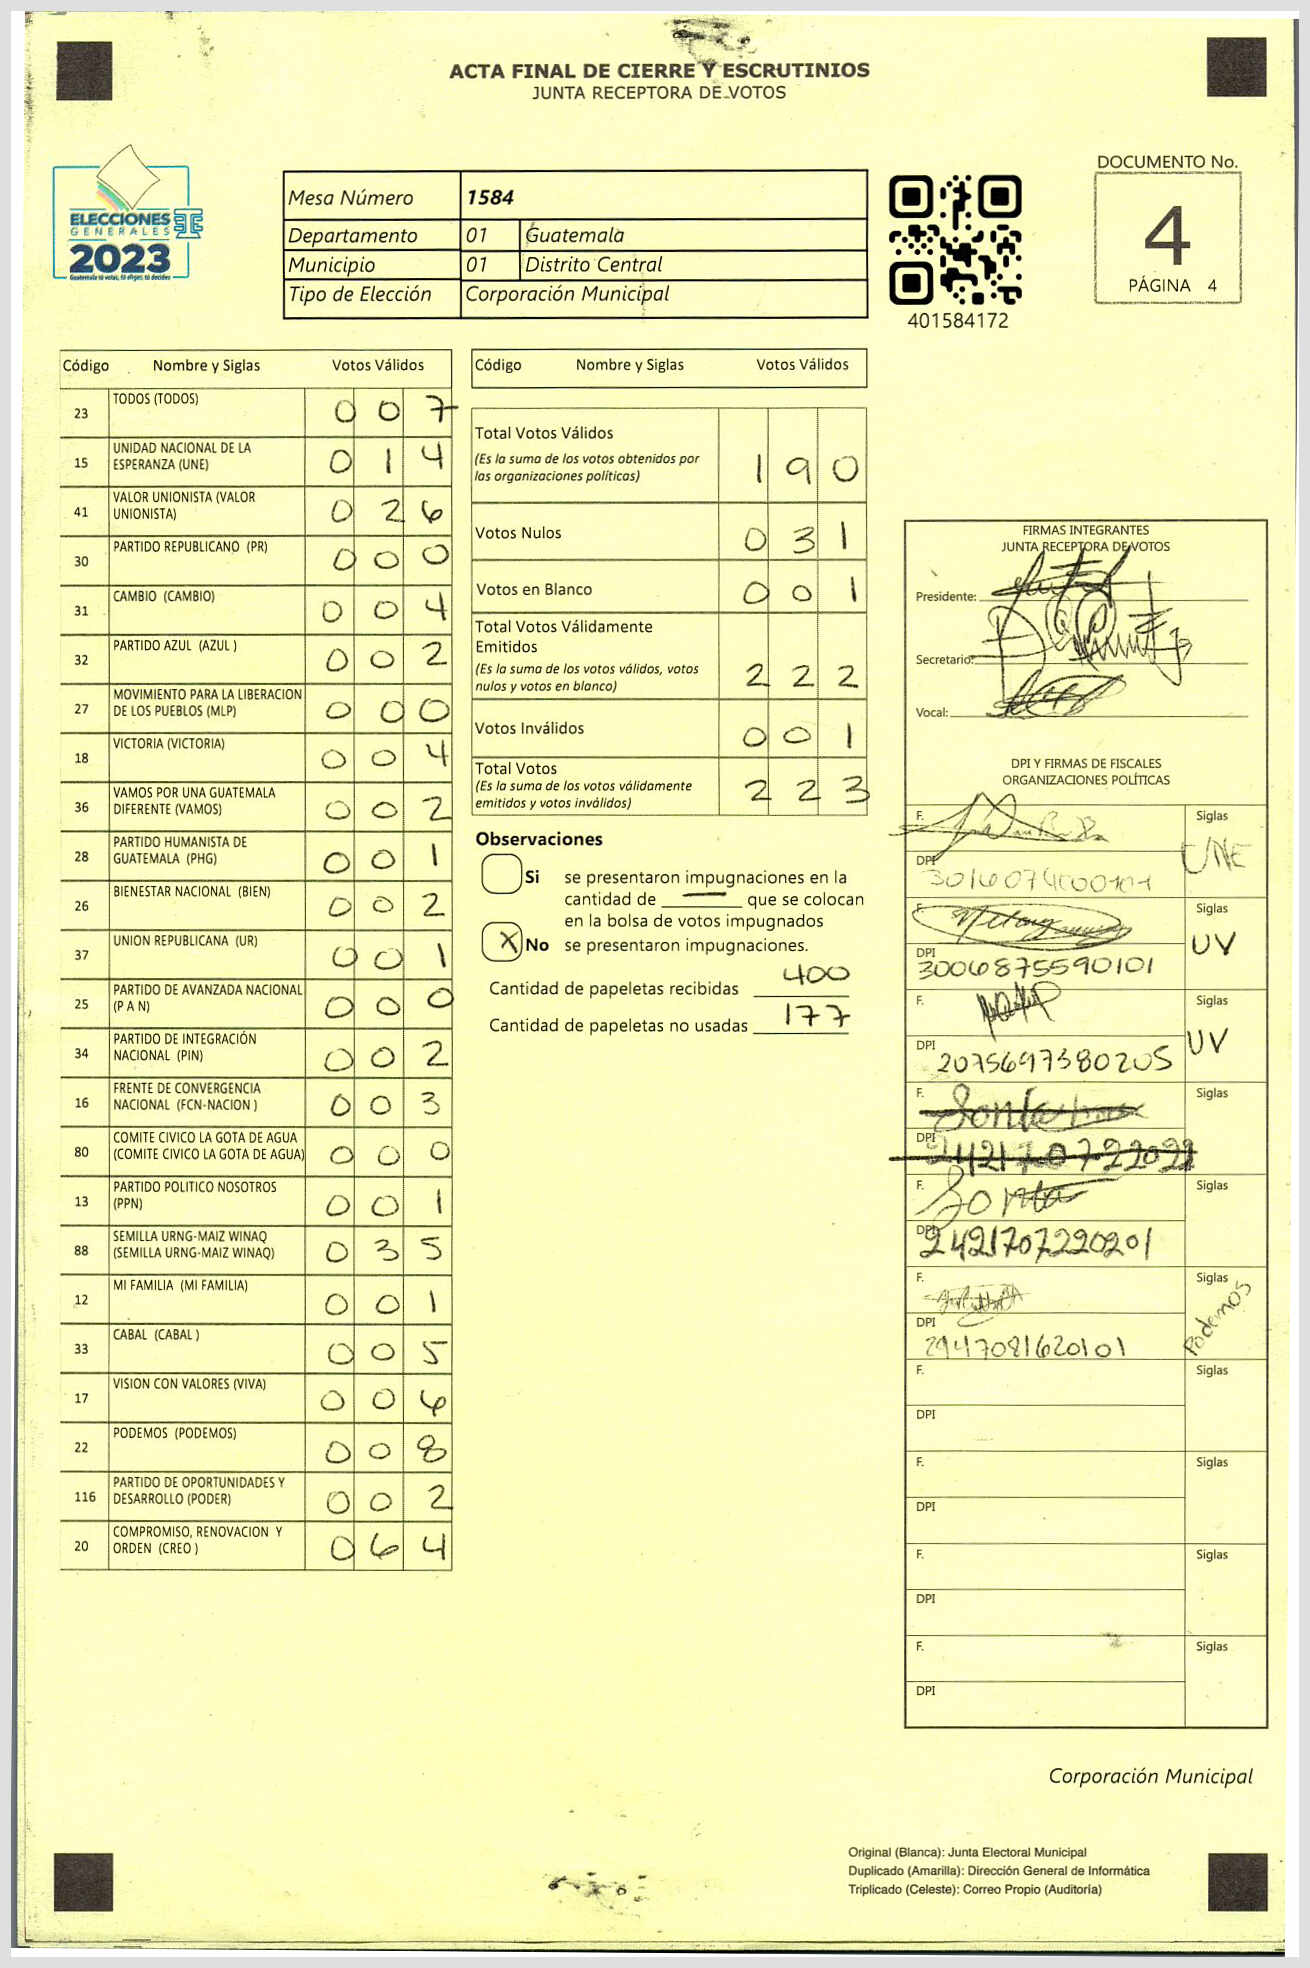 ACTA FINAL DE CIERRE Y ESCRUTINIOS
JUNTA RECEPTORA DE VOTOS
ELECCIONES
GENERALES
2023
Guatemala tú votas, tú eliges, tú decides
Mesa Número 1584
Departamento 01 Guatemala
Municipio 01 Distrito Central
Tipo de Elección Corporación Municipal
401584172
DOCUMENTO No.
4
PÁGINA 4
Código Nombre y Siglas Votos Válidos
23 TODOS (TODOS) 0 0 7
15 UNIDAD NACIONAL DE LA
ESPERANZA (UNE) 0 1 4
41 VALOR UNIONISTA (VALOR
UNIONISTA) 0 2 6
30 PARTIDO REPUBLICANO (PR) 0 0 0
31 CAMBIO (CAMBIO) 0 0 4
32 PARTIDO AZUL (AZUL ) 0 0 2
27 MOVIMIENTO PARA LA LIBERACION
DE LOS PUEBLOS (MLP) 0 0 0
18 VICTORIA (VICTORIA) 0 0 4
36 VAMOS POR UNA GUATEMALA
DIFERENTE (VAMOS) 0 0 2
28 PARTIDO HUMANISTA DE
GUATEMALA (PHG) 0 0 1
26 BIENESTAR NACIONAL (BIEN) 0 0 2
37 UNION REPUBLICANA (UR) 0 0 1
25 PARTIDO DE AVANZADA NACIONAL
(P A N) 0 0 0
34 PARTIDO DE INTEGRACIÓN
NACIONAL (PIN) 0 0 2
16 FRENTE DE CONVERGENCIA
NACIONAL (FCN-NACION ) 0 0 3
80 COMITE CIVICO LA GOTA DE AGUA
(COMITE CIVICO LA GOTA DE AGUA) 0 0 0
13 PARTIDO POLITICO NOSOTROS
(PPN) 0 0 1
88 SEMILLA URNG-MAIZ WINAQ
(SEMILLA URNG-MAIZ WINAQ) 0 3 5
12 MI FAMILIA (MI FAMILIA) 0 0 1
33 CABAL (CABAL ) 0 0 5
17 VISION CON VALORES (VIVA) 0 0 6
22 PODEMOS (PODEMOS) 0 0 8
116 PARTIDO DE OPORTUNIDADES Y
DESARROLLO (PODER) 0 0 2
20 COMPROMISO, RENOVACION Y
ORDEN (CREO ) 0 6 4
Código Nombre y Siglas Votos Válidos
Total Votos Válidos
(Es la suma de los votos obtenidos por
las organizaciones políticas) 1 9 0
Votos Nulos 0 3 1
Votos en Blanco 0 0 1
Total Votos Válidamente
Emitidos
(Es la suma de los votos válidos, votos
nulos y votos en blanco) 2 2 2
Votos Inválidos 0 0 1
Total Votos
(Es la suma de los votos válidamente
emitidos y votos inválidos) 2 2 3
Observaciones
Si se presentaron impugnaciones en la
cantidad de que se colocan
en la bolsa de votos impugnados
X No se presentaron impugnaciones.
Cantidad de papeletas recibidas 400
Cantidad de papeletas no usadas 177
FIRMAS INTEGRANTES
JUNTA RECEPTORA DE VOTOS
Presidente:
Secretario:
Vocal:
DPI Y FIRMAS DE FISCALES
ORGANIZACIONES POLÍTICAS
F. Siglas
UNE
DPI
F. Siglas
UV
DPI 3006875590101
F. Siglas
UV
DPI 2075697380205
F. Siglas
DPI
F. Siglas
DPI 2421707220201
F. Siglas
Podemos
DPI 2947081620101
F. Siglas
DPI
F. Siglas
DPI
F. Siglas
DPI
F. Siglas
DPI
Corporación Municipal
Original (Blanca): Junta Electoral Municipal
Duplicado (Amarilla): Dirección General de Informática
Triplicado (Celeste): Correo Propio (Auditoría)